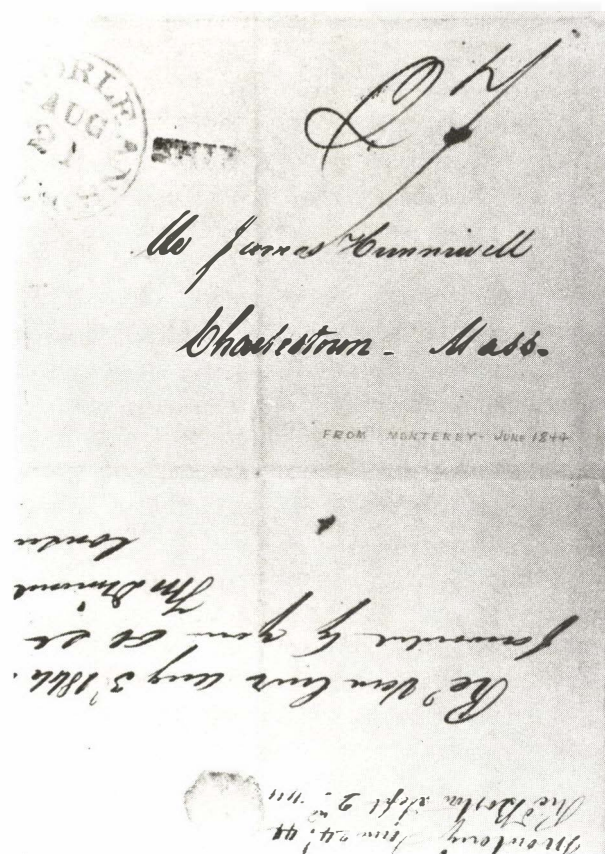 ORLEANS
AUG
21
SHIP
Mr James Hunniwell
Charlestown - Mass.
FROM MONTEREY - JUNE 1844
Rec'd Vera Cruz Aug 3'1844.
forwarded by your Ob St
Monterey June 24. 44
Rec'd Boston Sept 2nd "44